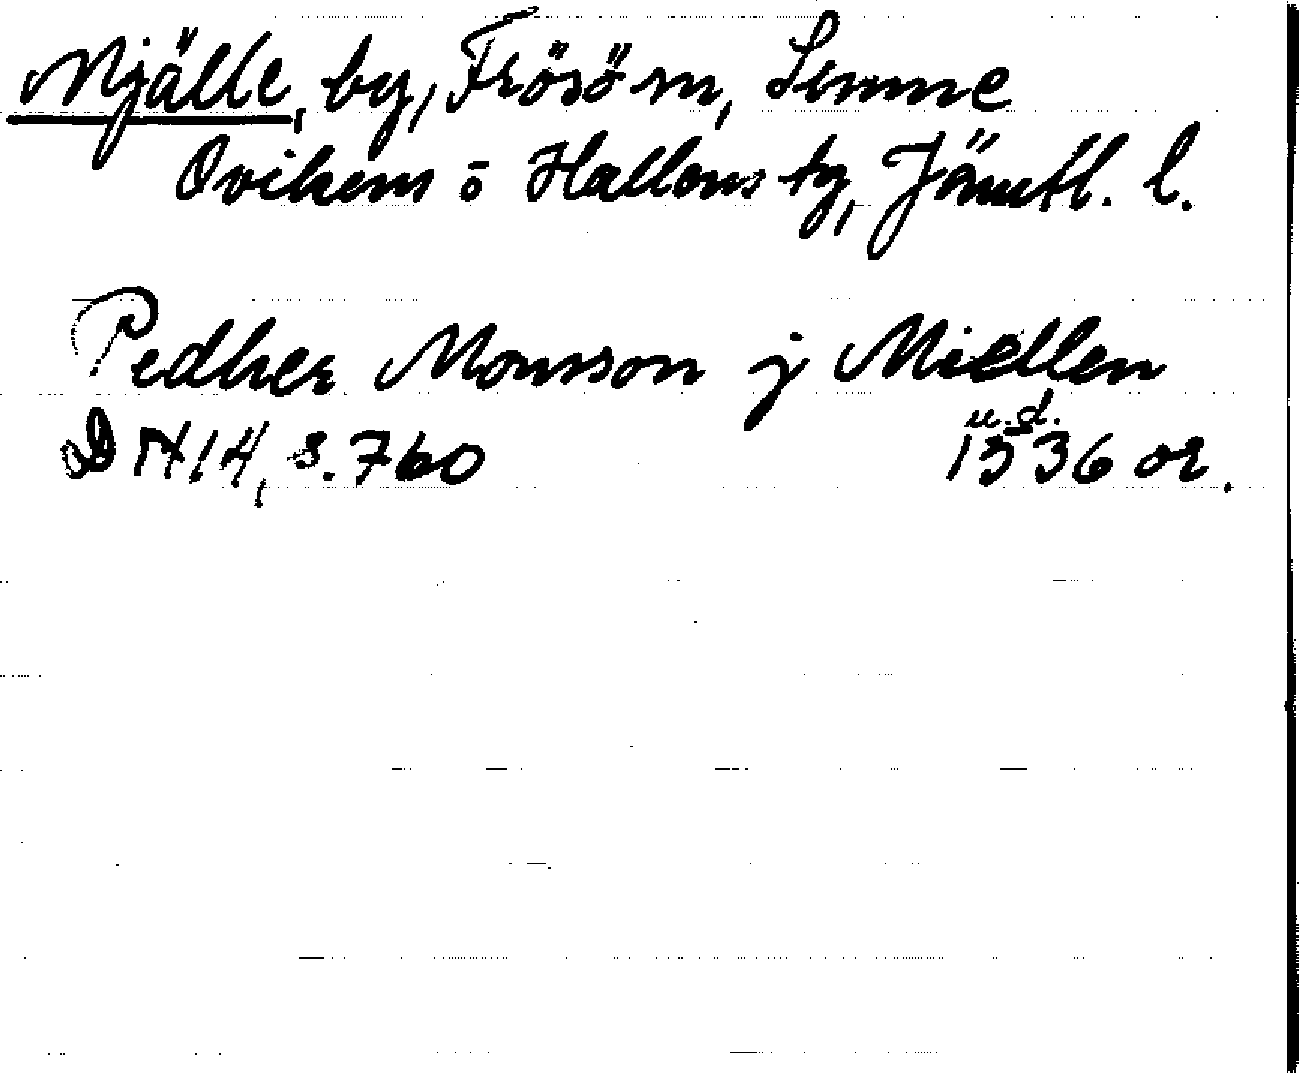 Mjälle, by, Frösö sn, Sunne
Ovikens o Hallens tg, Jämtl. l.
Pedher Monsson j Miellen
u.d.
DN 14, s. 760 1536 or.